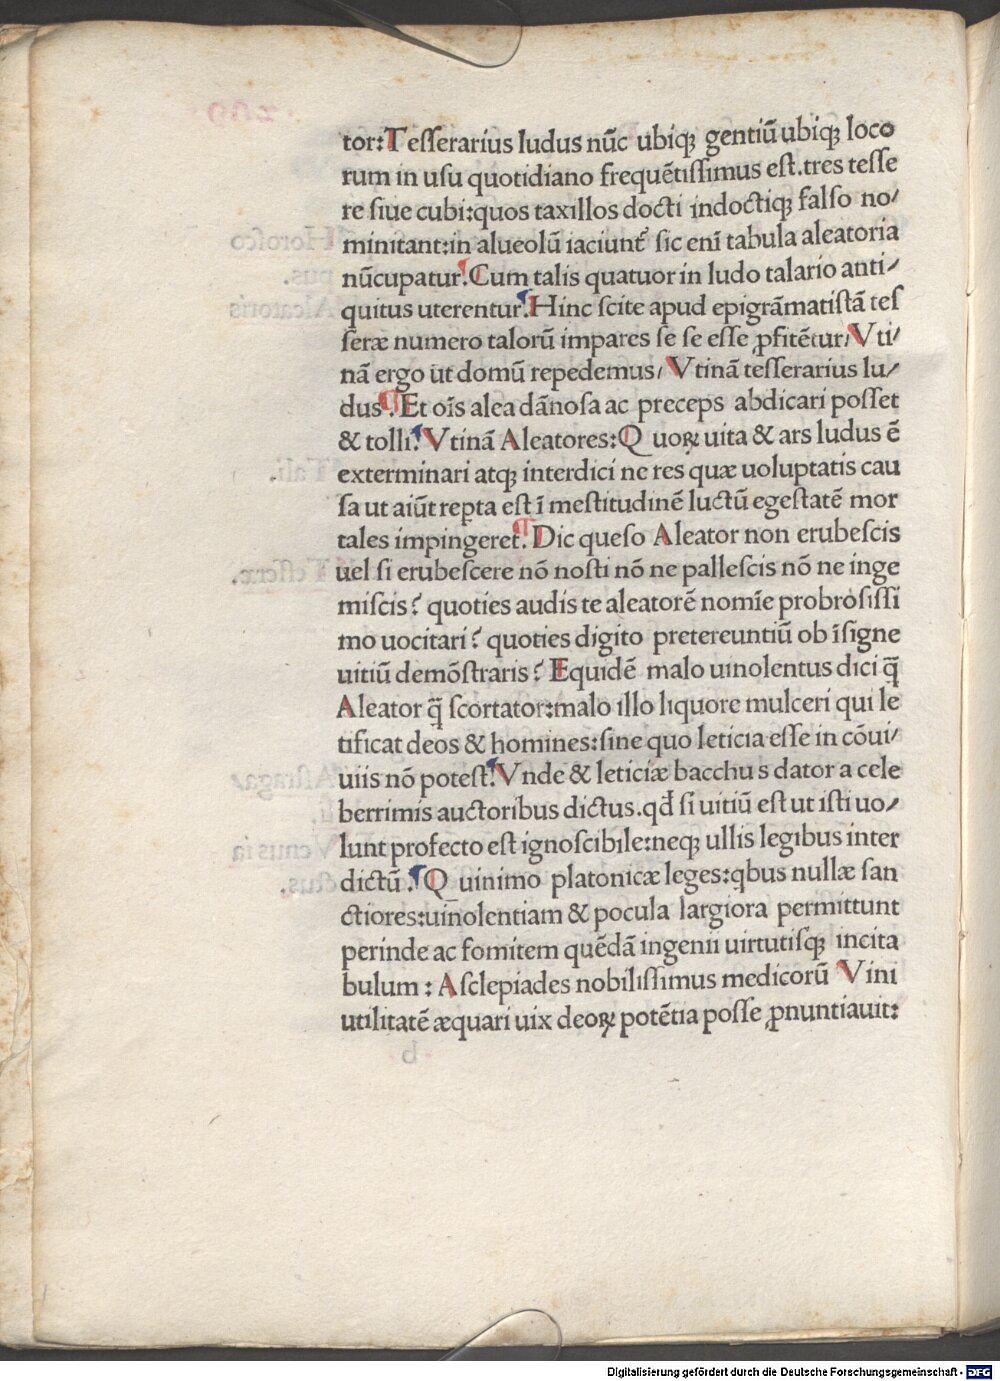 tor:Tesserarius ludus nūc ubiqꝫ gentiū ubiqꝫ loco
rum in usu quotidiano frequētissimus est.tres tesse
re siue cubi:quos taxillos docti indoctiqꝫ falso no/
minitant:in alueolū iaciunt᷑ sic enī tabula aleatoria
nūcupatur.Cum talis quatuor in ludo talario anti/
quitus uterentur.Hinc scite apud epigrāmatistā tes
seræ numero talorū impares se se esse ꝓfitētur/Vti/
nā ergo ut domū repedemus/Vtinā tesserarius lu/
dus.Et oīs alea dānosa ac preceps abdicari posset
& tolli.Vtinā Aleatores:Quoꝝ uita & ars ludus ē
exterminari atqꝫ interdici ne res quæ uoluptatis cau
sa ut aiūt repta est ī mestitudinē luctū egestatē mor
tales impingeret.Dic queso Aleator non erubescis
uel si erubescere nō nosti nō ne pallescis nō ne inge
miscis? quoties audis te aleatorē nomīe probrosissi
mo uocitari? quoties digito pretereuntiū ob īsigne
uitiū demōstraris? Equidē malo uinolentus dici q̄
Aleator q̄ scortator:malo illo liquore mulceri qui le
tificat deos & homines:sine quo leticia esse in cōui/
uiis nō potest.Vnde & leticiæ bacchus dator a cele
berrimis auctoribus dictus.qđ si uitiū est ut isti uo/
lunt profecto est ignoscibile:neqꝫ ullis legibus inter
dictū.Quinimo platonicæ leges:qbus nullæ san
ctiores:uinolentiam & pocula largiora permittunt
perinde ac fomitem quēdā ingenii uirtutisqꝫ incita
bulum:Asclepiades nobilissimus medicorū Vini
utilitatē æquari uix deoꝝ potētia posse ꝓnuntiauit:
Digitalisierung gefördert durch die Deutsche Forschungsgemeinschaft - DFG